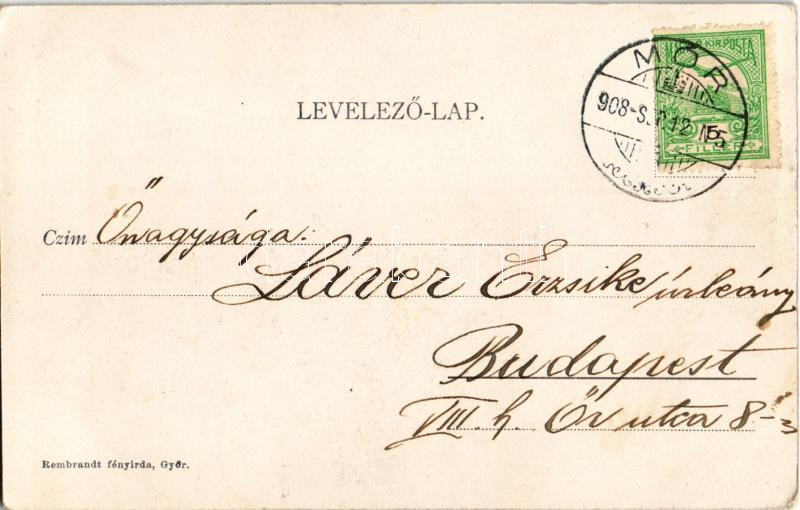 MAGYAR KIR. POSTA
MÓR
908
12
5
FILLÉR
LEVELEZŐ-LAP.
Czim Őnagysága:
Láver Erzsike úrleány
Budapest
VIII. h. Őr utca 8-
Rembrandt fényirda, Győr.